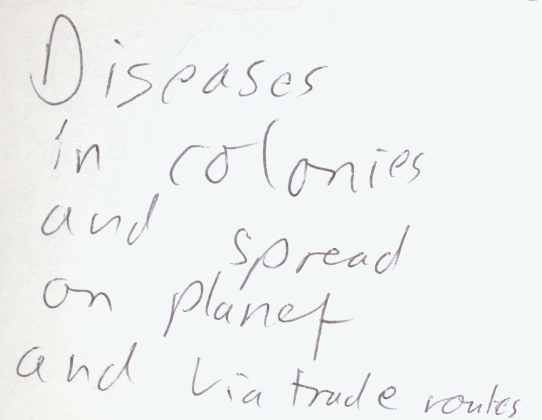 Diseases
in colonies
and spread
on planet
and via trade routes